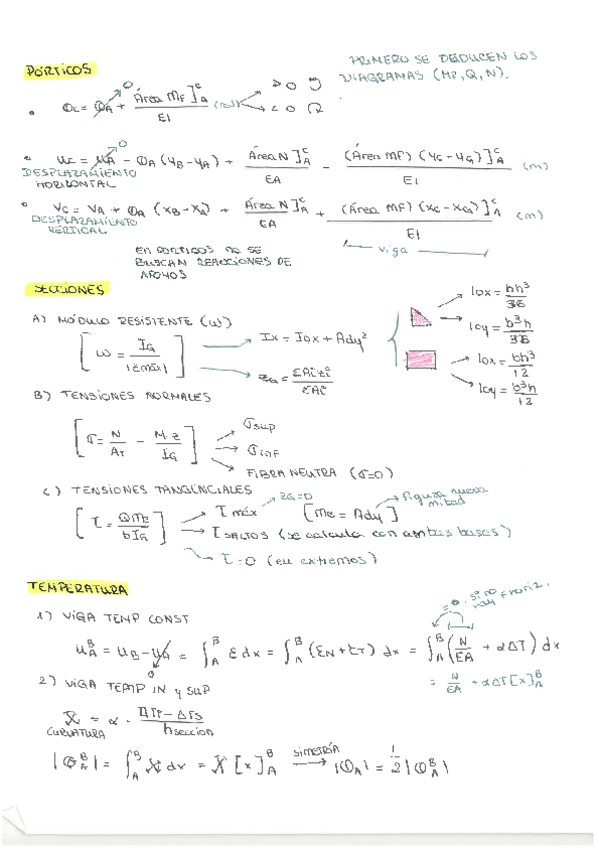 PRIMERO SE DEDUCEN LOS
DIAGRAMAS (MF, Q, N).
PÓRTICOS
• θc = θA + Área MF]A^c / EI (rad) > 0 ↺ < 0 ↻
• uc = uA - θA (yB - yA) + Área N]A^c / EA - (Área MF) (yc - yG)]A^c / EI (m)
DESPLAZAMIENTO
HORIZONTAL
• vc = vA + θA (xB - xA) + Área N]A^c / EA + (Área MF) (xc - xG)]A^c / EI (m)
DESPLAZAMIENTO
VERTICAL
viga
EN PORTICOS NO SE
BUSCAN REACCIONES DE
APOYOS
SECCIONES
A) MÓDULO RESISTENTE (W)
[W = IG / |zmáx|] → Ix = Iox + Ady²
→ zG = ΣAi zi / ΣAi
Iox = bh³/36
Ioy = b³h/36
Iox = bh³/12
Ioy = b³h/12
B) TENSIONES NORMALES
[σ = N/AT - M·z/IG] → σsup
→ σinf
→ FIBRA NEUTRA (σ=0)
C) TENSIONES TANGENCIALES
[τ = QMe / bIG] → τ máx → zG=0 [Me = Ady] → figura nueva mitad
→ τ SALTOS (se calcula con ambas bases)
→ τ = 0 (en extremos)
TEMPERATURA
= 0, si no hay F horiz.
1) VIGA TEMP CONST
uA^B = uB - uA = ∫A^B ε dx = ∫A^B (εN + εT) dx = ∫A^B (N/EA + αΔT) dx
= N/EA + αΔT [x]A^B
2) VIGA TEMP IN y SUP
χ = α · ΔTi - ΔTs / h seccion
CURVATURA
|θA^B| = ∫A^B χ dx = χ [x]A^B simetría → |θA| = 1/2 |θA^B|